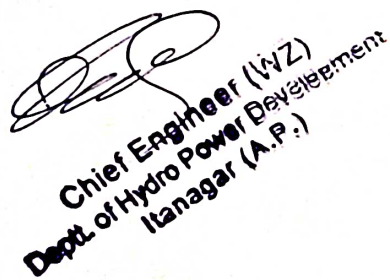 Chief Engineer (WZ)
Deptt. of Hydro Power Development
Itanagar (A.P.)